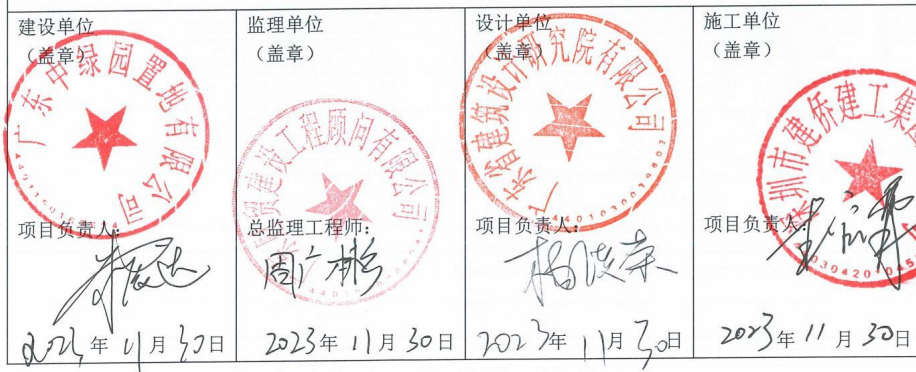 建设单位
（盖章）
广东中绿园置地有限公司
项目负责人：
2023年11月30日
监理单位
（盖章）
建设工程顾问有限公司
总监理工程师：
周广彬
2023年11月30日
设计单位
（盖章）
广东省建筑设计研究院有限公司
项目负责人：
2023年11月30日
施工单位
（盖章）
深圳市建侨建工集
项目负责人：
2023年11月30日